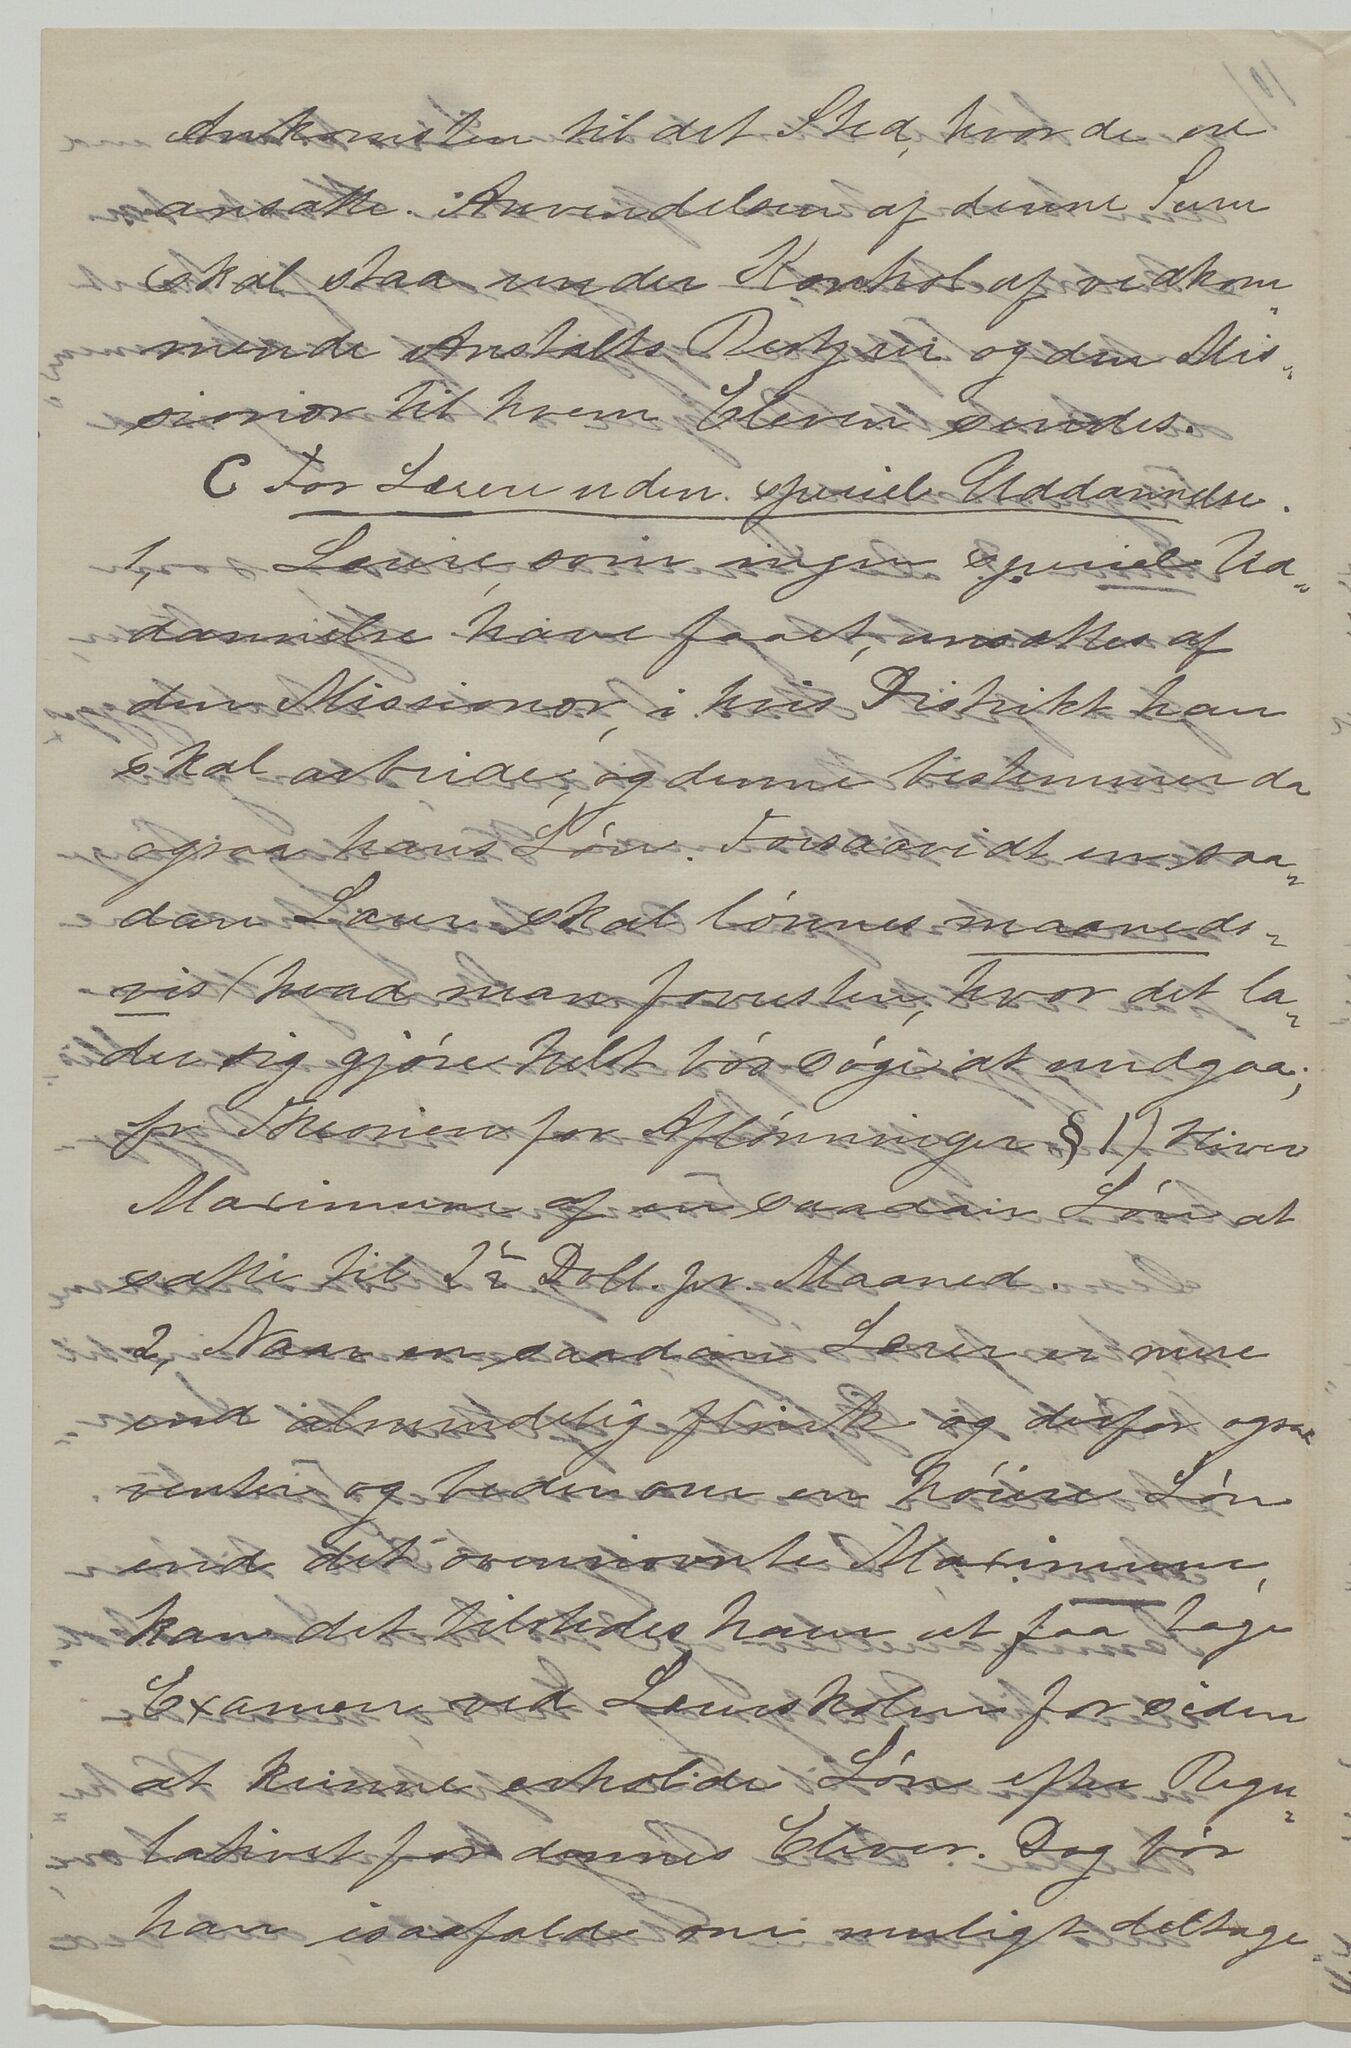 Ankomsten til det Sted, hvor de ere
ansatte. Anvendelsen af denne Sum
skal staa under Kontrol af vedkom„
mende Anstalts Bestyrer og den Mis„
sionær til hvem Eleven sendes.
C For Lærere uden speciel Uddannelse.
1, Lærere, som ingen speciel Ud„
dannelse have faaet, ansættes af
den Missionær, i hvis Distrikt han
skal arbeide, og denne bestemmer da
ogsaa hans Løn. Forsaavidt en saa„
dan Lærer skal lønnes maaneds„
vis (hvad man forresten, hvor det la„
der sig gjøre helst bør søge at undgaa;
fr Theorien for Aflønninger § 1) bliver
Maximum af en saadan Løn at
sætte til 2½ Doll. pr. Maaned.
2, Naar en saadan Lærer er mere
end almindelig flink og derfor ogsaa
venter og beder om en høiere Løn
end det ovennævnte Maximum,
kan det tilstedes ham at faa tage
Examen ved Lærerskolen for siden
at kunne erholde Løn efter Regu„
lativet for dennes Elever. Dog bør
han isaafald om muligt deltage